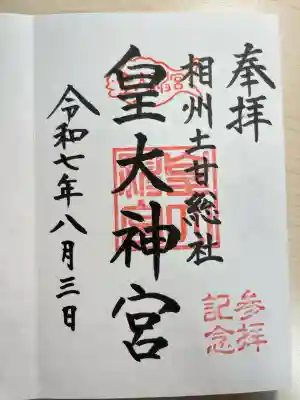 奉拝
参拝
記念
相州土甘総社
皇大神宮
令和七年八月三日